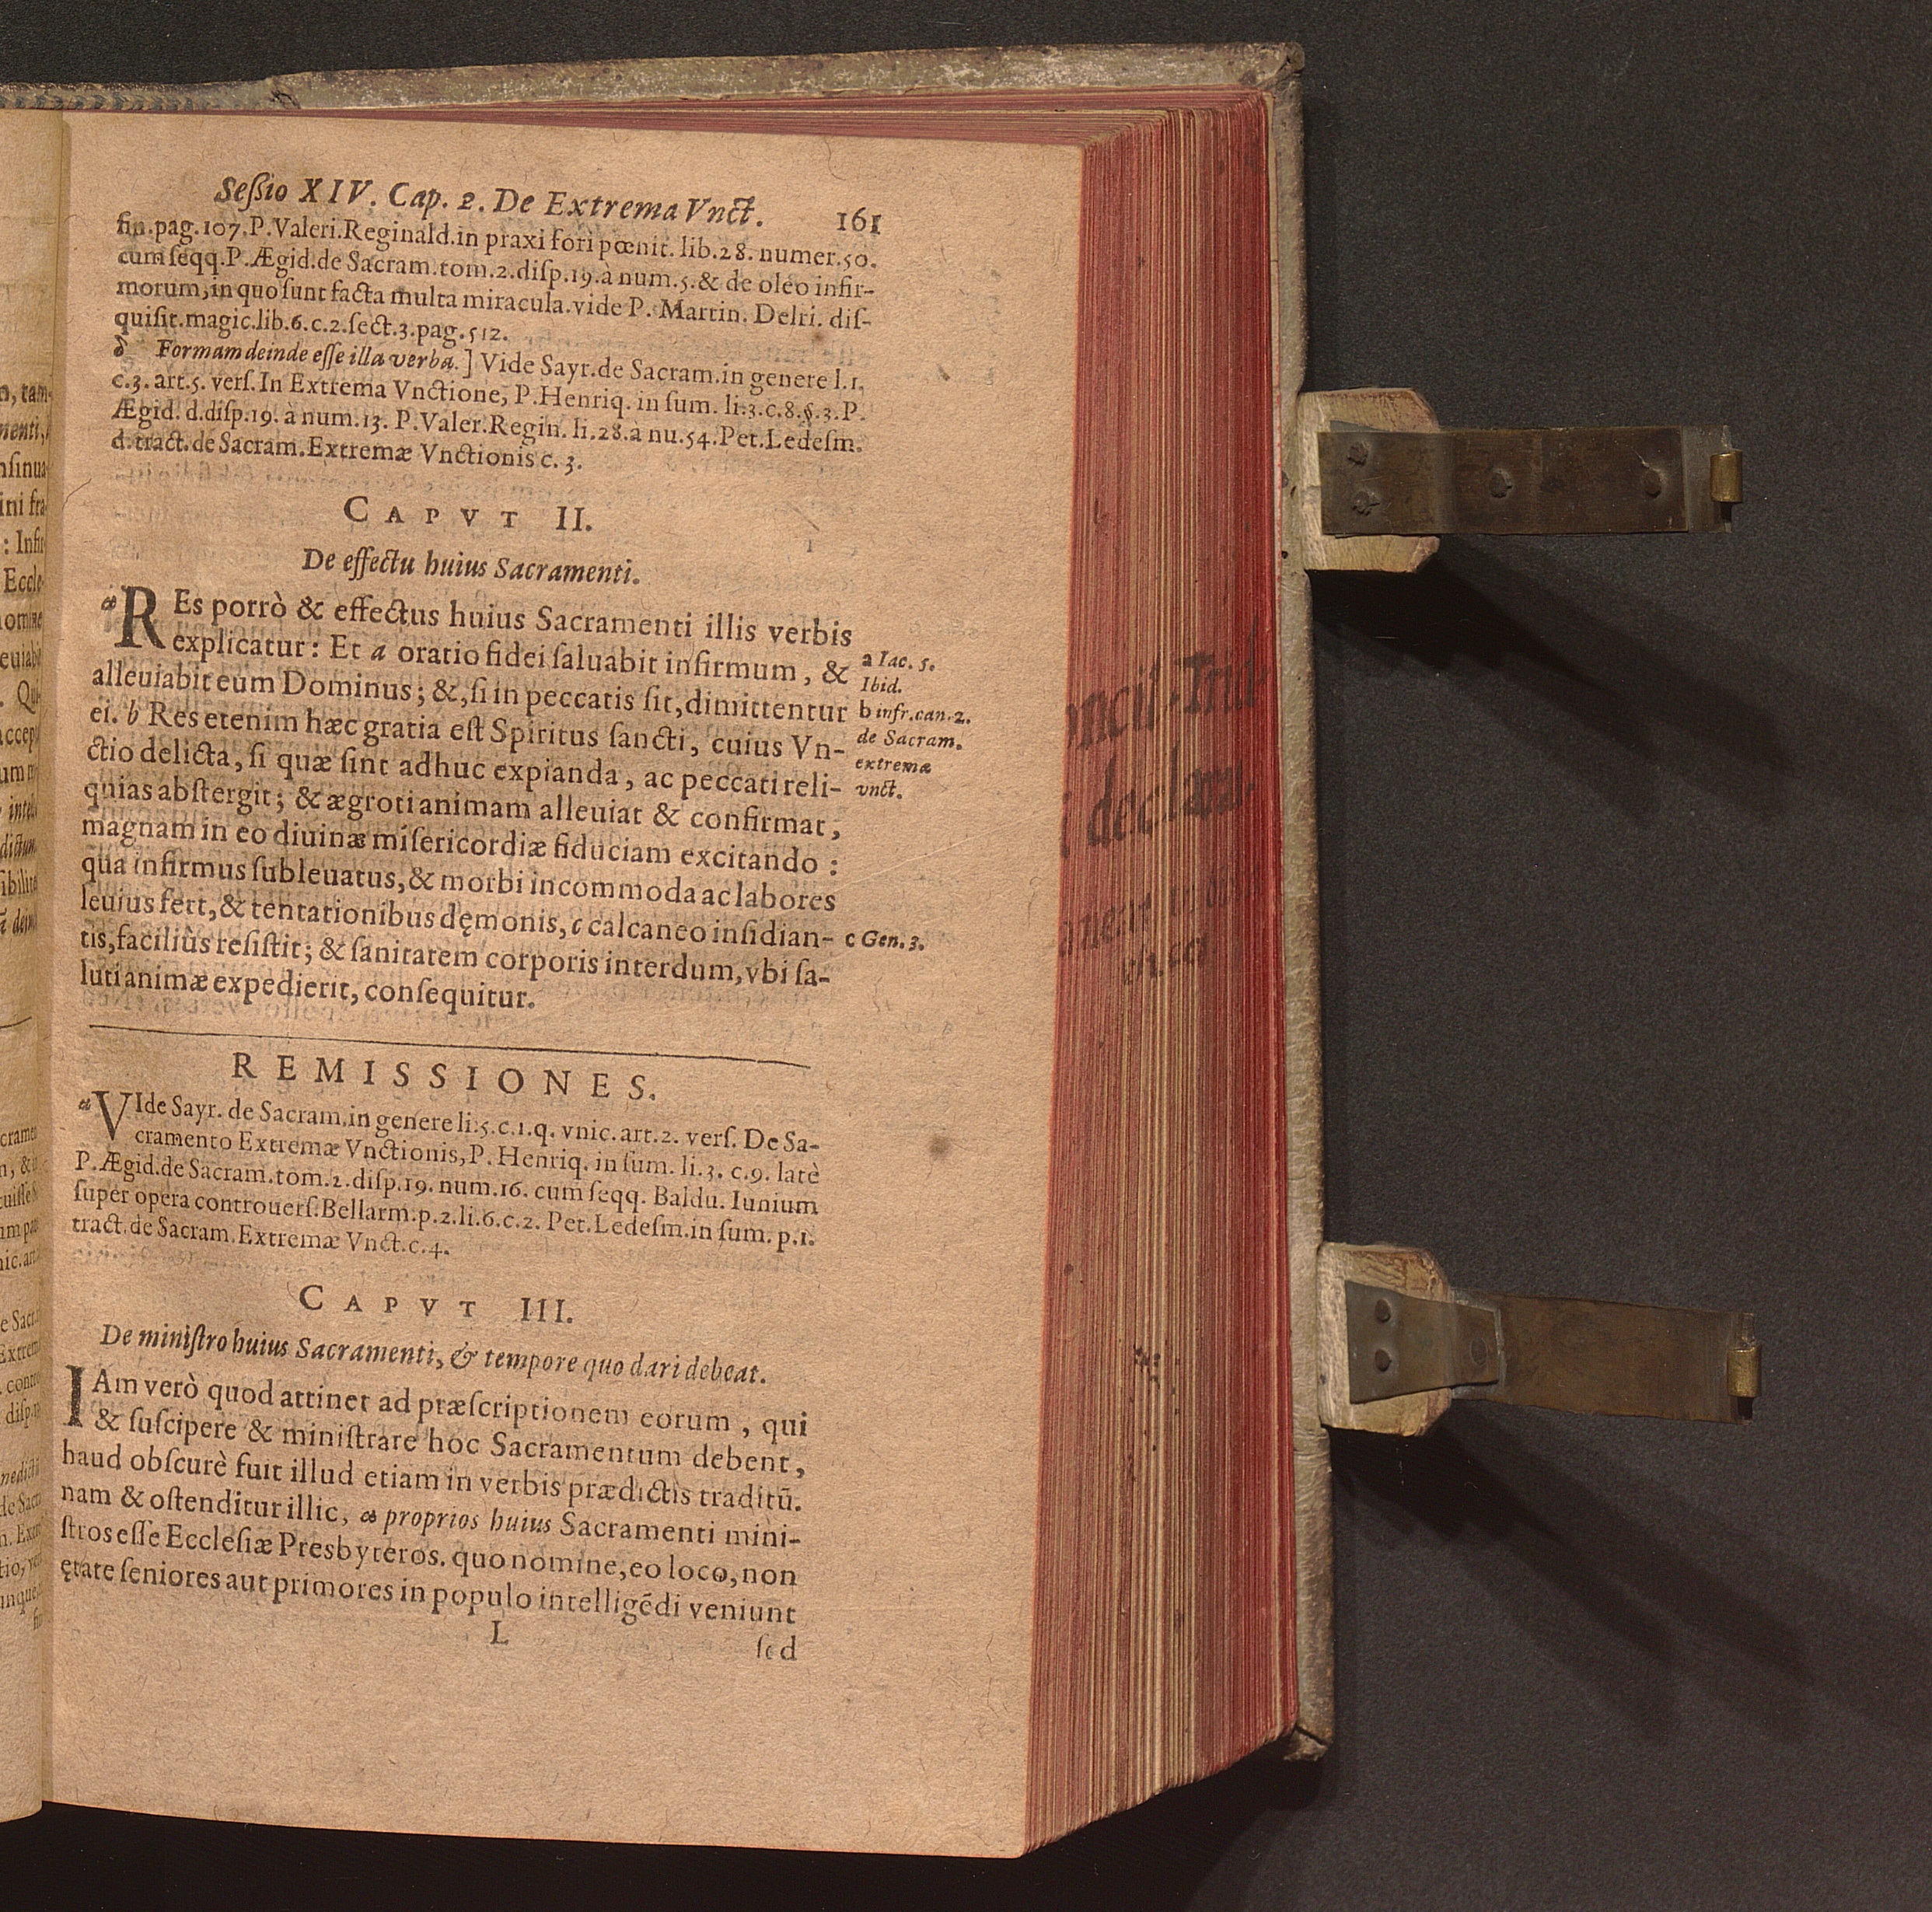 Seßio XIV. Cap. 2. De Extrema Vnct. 161
fin.pag.107.P.Valeri.Reginald.in praxi fori pœnit. lib.28. numer.50.
cum ſeqq.P.Ægid.de Sacram.tom.2.diſp.19.à num.5.& de oleo infir-
morum,in quo ſunt facta multa miracula.vide P. Martin. Delri. diſ-
quiſit.magic.lib.6.c.2.ſect.3.pag.512.
δ Formam deinde eſſe illa verba.] Vide Sayr.de Sacram.in genere l.1.
c.3. art.5. verſ. In Extrema Vnctione, P.Henriq. in ſum. li.3.c.8.§.3.P.
Ægid. d.diſp.19. à num.13. P.Valer.Regin. li.28.à nu.54.Pet.Ledeſm.
d.tract.de Sacram.Extremæ Vnctionis c. 3.
CAPVT II.
De effectu huius Sacramenti.
α REs porrò & effectus huius Sacramenti illis verbis
explicatur: Et a oratio fidei ſaluabit infirmum, &
alleuiabit eum Dominus; &, ſi in peccatis ſit, dimittentur
ei. b Res etenim hæc gratia eſt Spiritus ſancti, cuius Vn-
ctio delicta, ſi quæ ſint adhuc expianda, ac peccati reli-
quias abſtergit; & ægroti animam alleuiat & confirmat,
magnam in eo diuinæ miſericordiæ fiduciam excitando :
qua infirmus ſubleuatus, & morbi incommoda ac labores
leuius fert, & tentationibus dęmonis, c calcaneo inſidian-
tis, faciliùs reſiſtit; & ſanitatem corporis interdum, vbi ſa-
luti animæ expedierit, conſequitur.
a Iac. 5.
Ibid.
b infr.can.2.
de Sacram.
extremæ
vnct.
c Gen. 3.
REMISSIONES.
α VIde Sayr. de Sacram.in genere li.5.c.1.q. vnic.art.2. verſ. De Sa-
cramento Extremæ Vnctionis, P. Henriq. in ſum. li.3. c.9. latè
P.Ægid.de Sacram.tom.2.diſp.19. num.16. cum ſeqq. Baldu. Iunium
ſuper opera controuerſ.Bellarm.p.2.li.6.c.2. Pet.Ledeſm.in ſum. p.1.
tract.de Sacram.Extremæ Vnct.c.4.
CAPVT III.
De miniſtro huius Sacramenti, & tempore quo dari debeat.
IAm verò quod attinet ad præſcriptionem eorum, qui
& ſuſcipere & miniſtrare hoc Sacramentum debent,
haud obſcurè fuit illud etiam in verbis prædictis traditū.
nam & oſtenditur illic, α proprios huius Sacramenti mini-
ſtros eſſe Eccleſiæ Presbyteros. quo nomine, eo loco, non
ętate ſeniores aut primores in populo intelligēdi veniunt
L ſed
declara